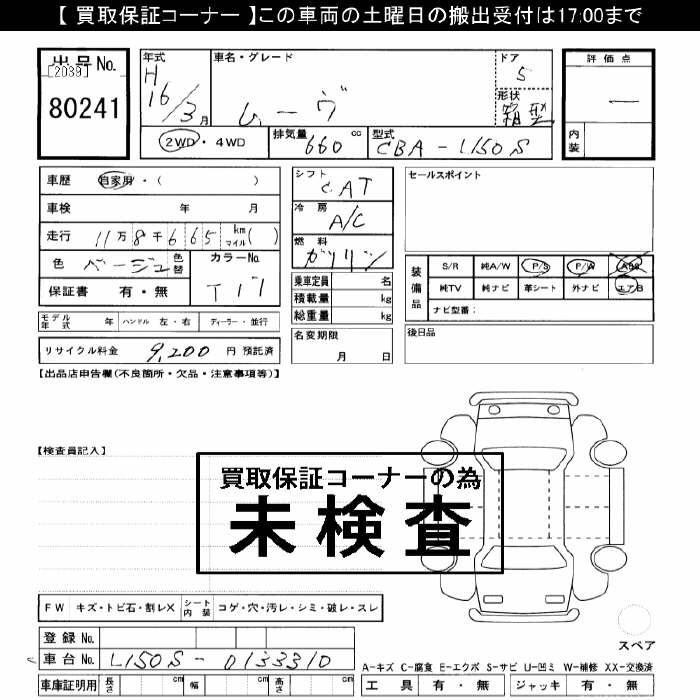 【 買取保証コーナー 】この車両の土曜日の搬出受付は17:00まで
出品No.
[2039]
80241
年式
H 16/3月
車名・グレード
ムーヴ
ドア
5
形状
箱型
評価点
ー
内装
2WD・4WD
排気量 660 cc
型式 CBA-L150S
車歴 自家用・( )
車検 年 月
走行 11万8千665 km マイル ( )
色 ベージュ 色替
カラーNo. T17
保証書 有・無
モデル年式 年 ハンドル 左・右 ディーラー・並行
リサイクル料金 9,200 円 預託済
シフト CAT
冷房 A/C
燃料 ガソリン
乗車定員 名
積載量 kg
総重量 kg
名変期限
月 日
セールスポイント
装備品
S/R 純A/W P/S P/W ABS
純TV 純ナビ 革シート 外ナビ エアB
ナビ型番:
後日品
【出品店申告欄(不良箇所・欠品・注意事項等)】
【検査員記入】
買取保証コーナーの為
未検査
FW キズ・トビ石・割レX シート内装 コゲ・穴・汚レ・シミ・破レ・スレ
登録No.
車台No. L150S-0133310
車庫証明用 長さ cm 幅 cm 高さ cm
スペア
A-キズ C-腐食 E-エクボ S-サビ U-凹ミ W-補修 XX-交換済
工具 有・無 ジャッキ 有・無